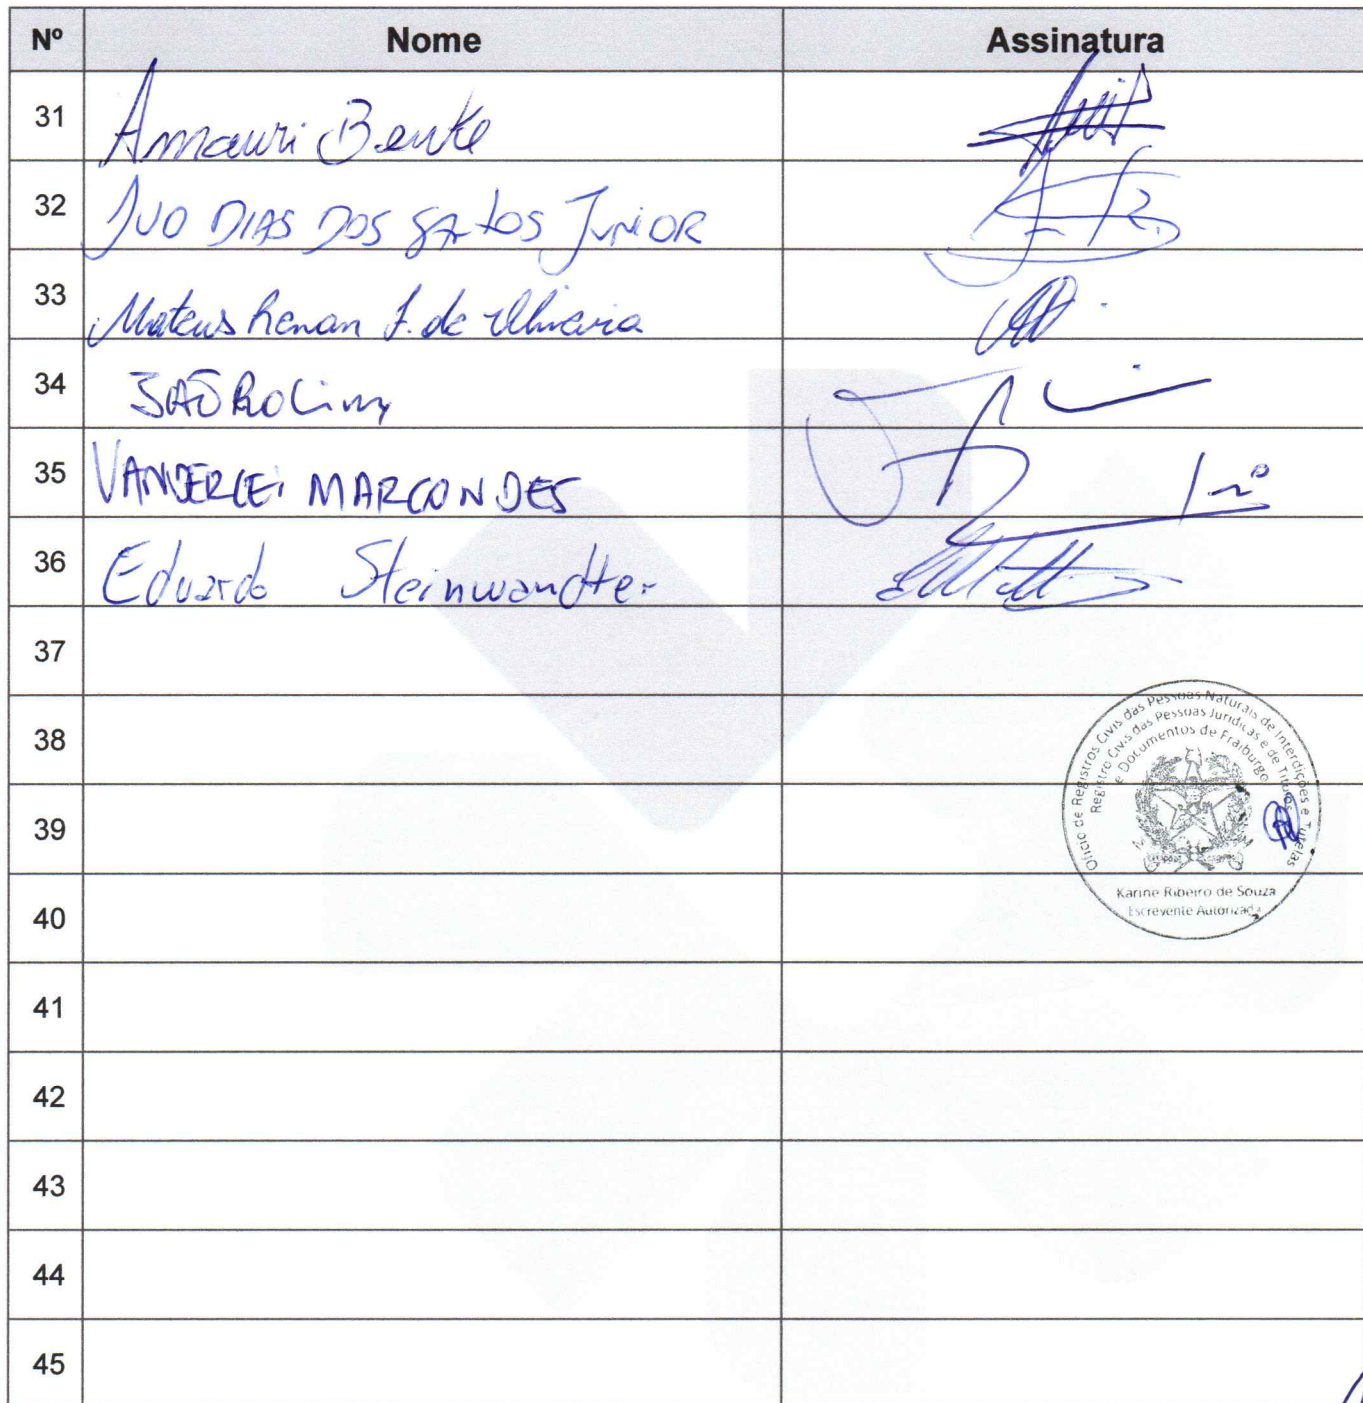 Nº Nome Assinatura
31 Amauri Benke
32 IVO DIAS DOS SATOS JUNIOR
33 Mateus Renan J. de Oliveira
34
35 VANDERLEI MARCONDES
36 Eduardo Steinwandter
37
38
39
40
41
42
43
44
45
Ofício de Registros Civis das Pessoas Naturais de Interdições e Tutelas
Registro Civis das Pessoas Jurídicas e de Títulos
e Documentos de Fraiburgo
Karine Ribeiro de Souza
Escrevente Autorizada